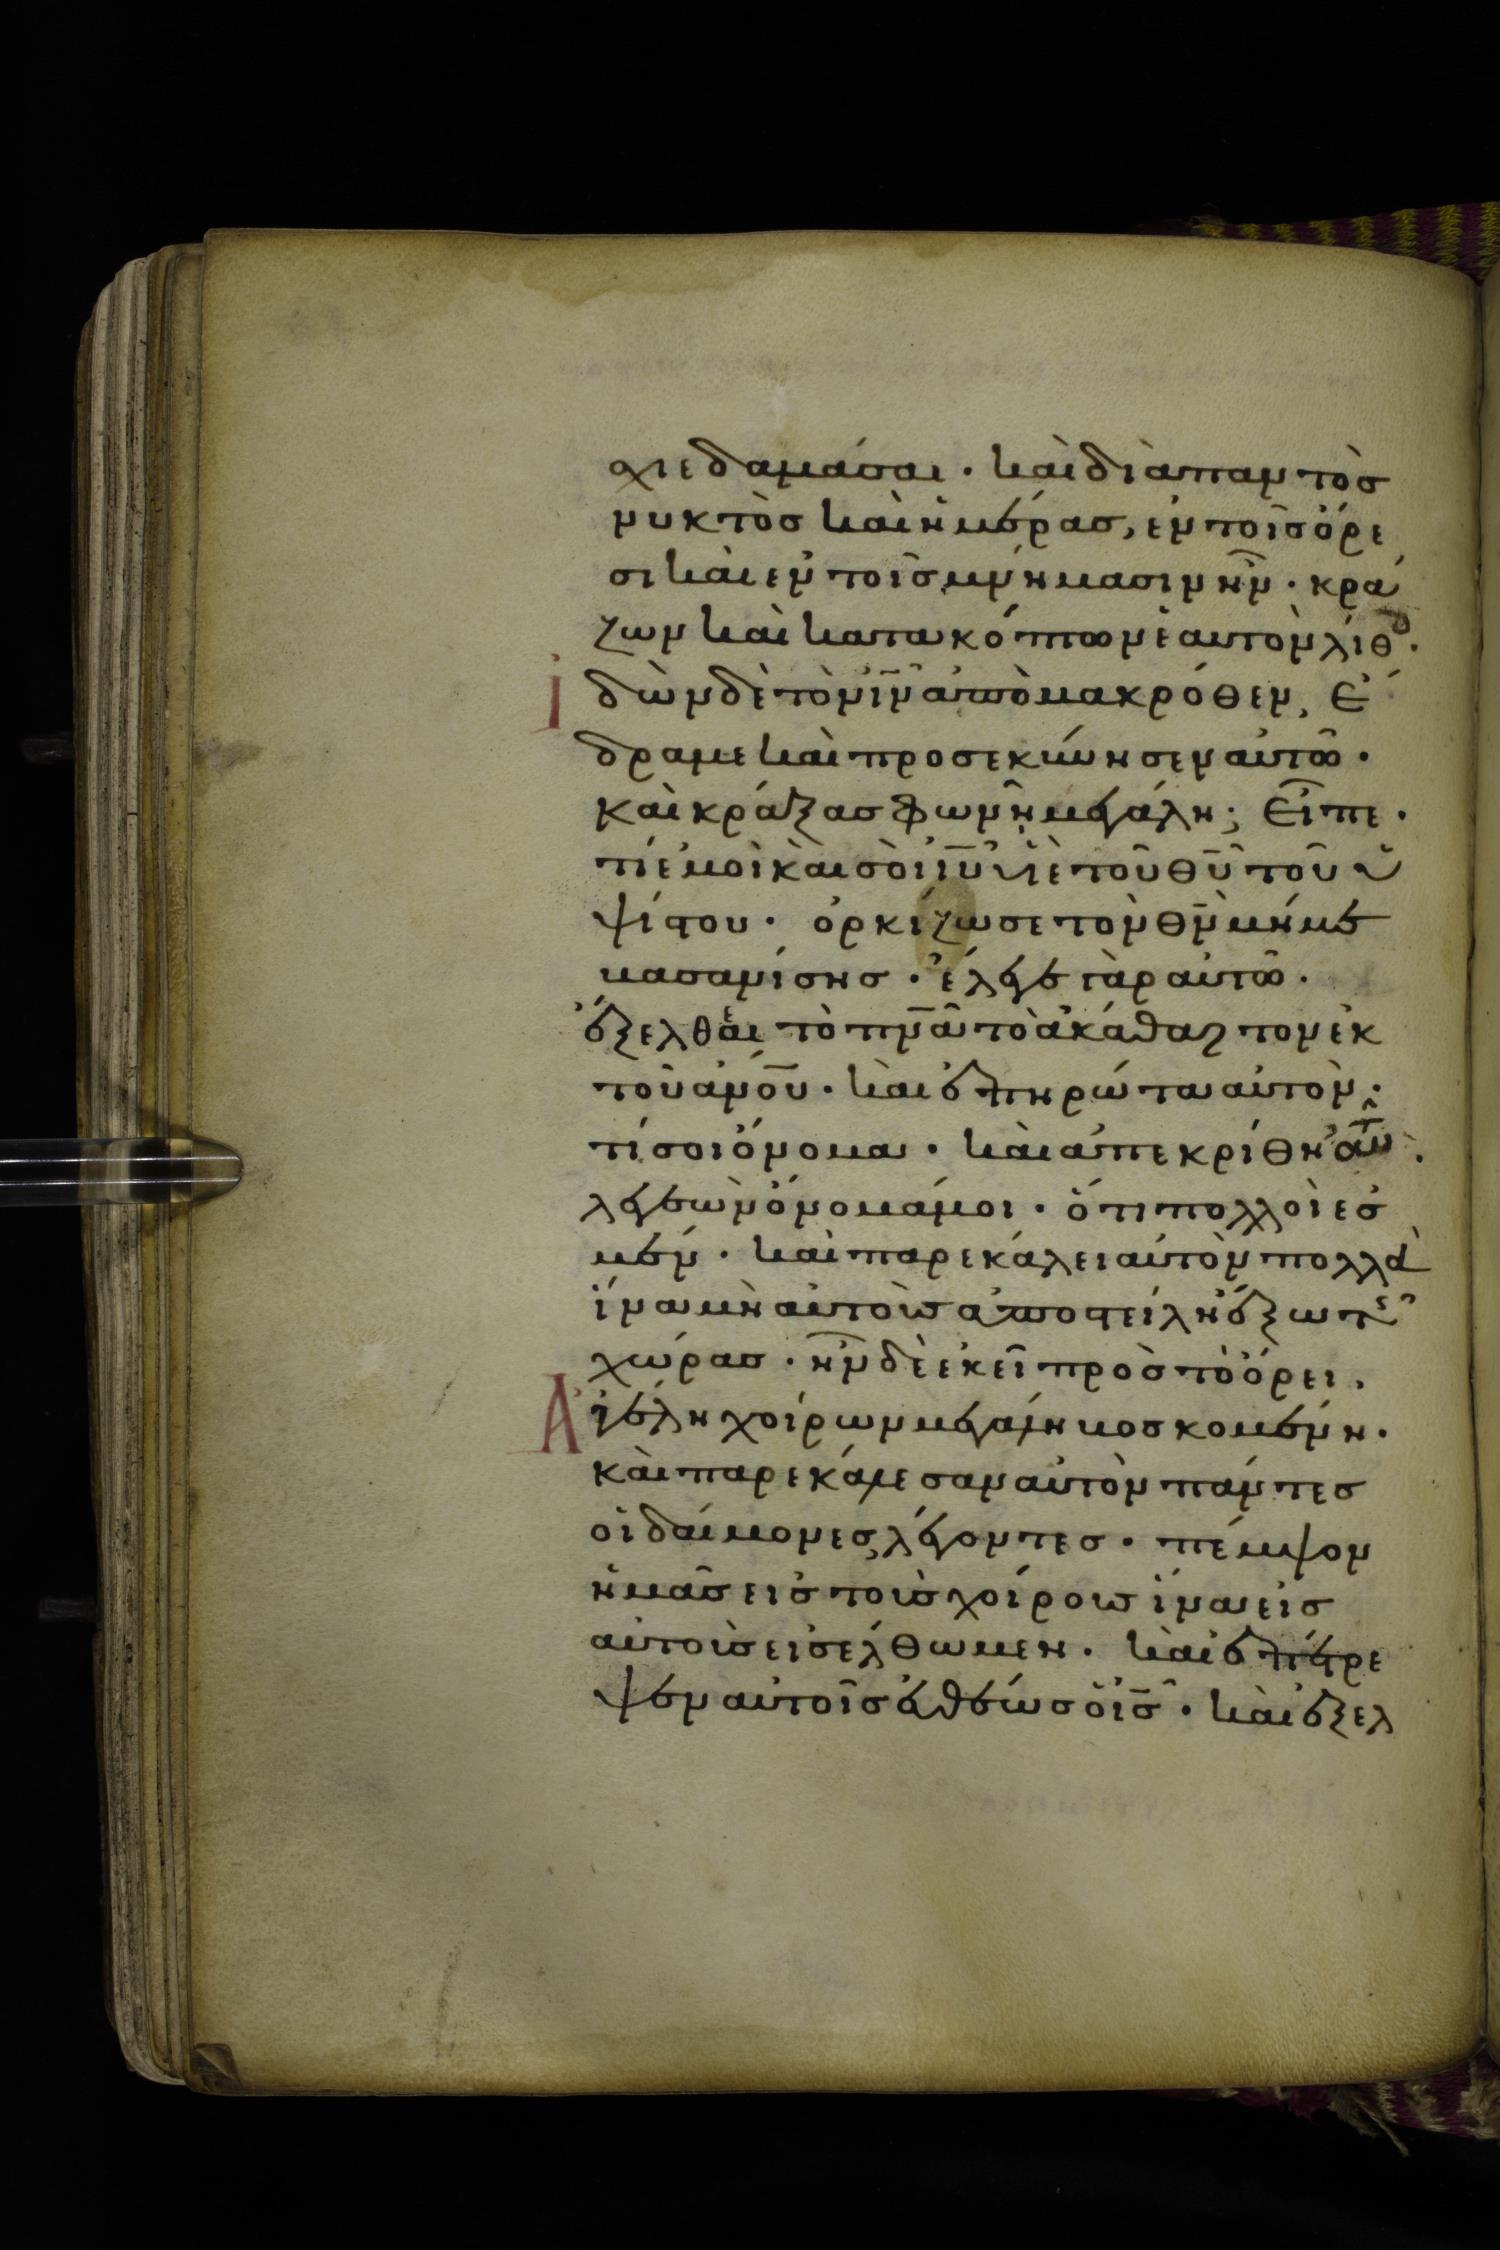 χυε δαμάσαι · καὶ διὰ παντὸς
νυκτὸς καὶ ἡμέρας, ἐν τοῖς ὄρε
σι καὶ ἐν τοῖς μνήμασιν ἦν · κρά
ζων καὶ κατακόπτων ἑαυτὸν λίθ ·
Ἰδὼν δὲ τὸν ιν ἀπὸ μακρόθεν, ἔ
δραμε καὶ προσεκύνησεν αὐτῶ ·
καὶ κράξας φωνῆ μεγάλη, εἶπε ·
τί ἐμοὶ καὶ σοὶ ιυ υἱὲ τοῦ θυ τοῦ ὑ
ψίστου · ὁρκίζω σε τὸν θν μή με
βασανίσης · ἔλεγε γὰρ αὐτῶ ·
ἔξελθε τὸ πνα τὸ ἀκάθαρτον ἐκ
τοῦ ανου · καὶ ἐπηρώτα αὐτὸν ·
τί σοι ὄνομα · καὶ ἀπεκρίθη αὐτῶ ·
λεγεὼν ὄνομά μοι · ὅτι πολλοί ἐσ
μεν · καὶ παρεκάλει αὐτὸν πολλὰ
ἵνα μὴ αὐτοὺς ἀποστείλη ἔξω τῆς
χώρας · ἦν δὲ ἐκεῖ πρὸς τὸ ὄρει,
Ἀγέλη χοίρων μεγάλη βοσκομένη ·
καὶ παρεκάλεσαν αὐτὸν πάντες
οἱ δαίμονες, λέγοντες · πέμψον
ἡμᾶς εἰς τοὺς χοίρους ἵνα εἰς
αὐτοὺς εἰσέλθωμεν · καὶ ἐπέτρε
ψεν αὐτοῖς εὐθέως ὁ ις · καὶ ἐξελ